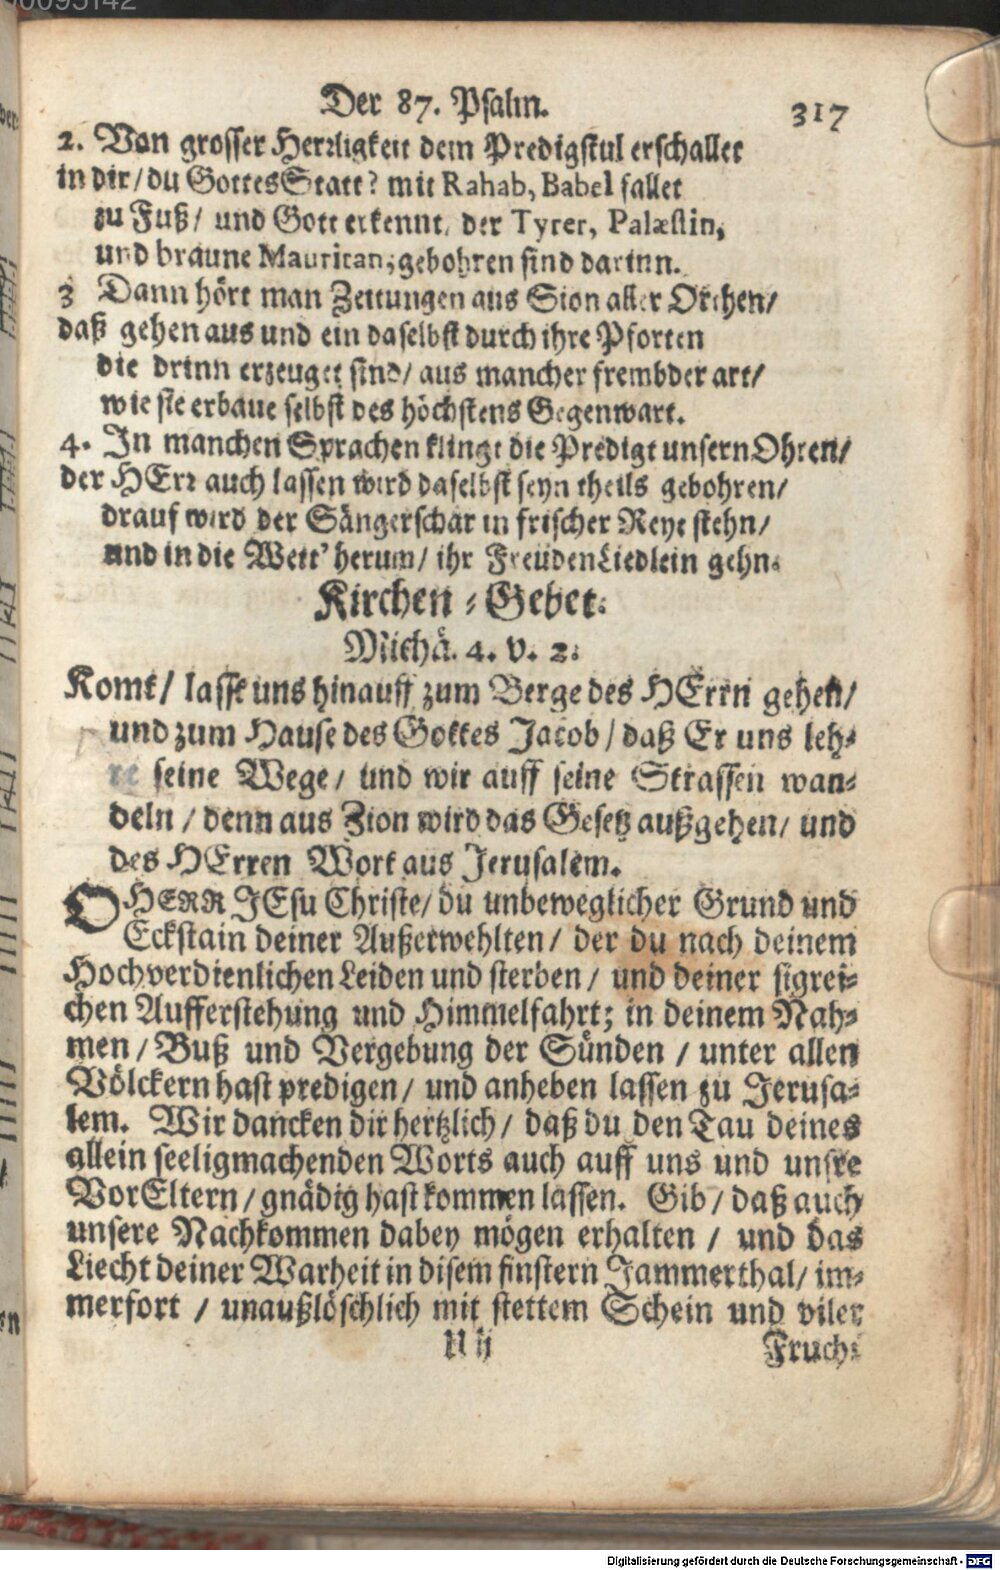 Der 87. Psalm. 317
2. Von grosser Herrligkeit dem Predigstul erschallet
in dir/ du GottesStatt? mit Rahab, Babel fallet
zu Fuß/ und Gott erkennt, der Tyrer, Palæstin,
und braune Mauritan, gebohren sind darinn.
3 Dann hört man Zeitungen aus Sion aller Orthen/
daß gehen aus und ein daselbst durch ihre Pforten
die drinn erzeuget sind/ aus mancher frembder art/
wie sie erbaue selbst des höchstens Gegenwart.
4. In manchen Sprachen klingt die Predigt unsern Ohren/
der HErr auch lassen wird daselbst seyn theils gebohren/
drauf wird der Sängerschar in frischer Reye stehn/
und in die Wett' herum/ ihr FreüdenLiedlein gehn.
Kirchen-Gebet.
Michä. 4. v. 2.
Komt/ lasst uns hinauff zum Berge des HErrn gehen/
und zum Hause des Gottes Jacob/ daß Er uns leh-
re seine Wege/ und wir auff seine Strassen wan-
deln/ denn aus Zion wird das Gesetz außgehen/ und
des HErren Wort aus Jerusalem.
O HERR JEsu Christe/ du unbeweglicher Grund und
Eckstain deiner Außerwehlten/ der du nach deinem
Hochverdienlichen Leiden und sterben/ und deiner sigrei-
chen Aufferstehung und Himmelfahrt; in deinem Nah-
men/ Buß und Vergebung der Sünden/ unter allen
Völckern hast predigen/ und anheben lassen zu Jerusa-
lem. Wir dancken dir hertzlich/ daß du den Tau deines
allein seeligmachenden Worts auch auff uns und unsre
VorEltern/ gnädig hast kommen lassen. Gib/ daß auch
unsere Nachkommen dabey mögen erhalten/ und das
Liecht deiner Warheit in disem finstern Jammerthal/ im-
merfort/ unaußlöschlich mit stettem Schein und viler
Fruch-
Digitalisierung gefördert durch die Deutsche Forschungsgemeinschaft - DFG